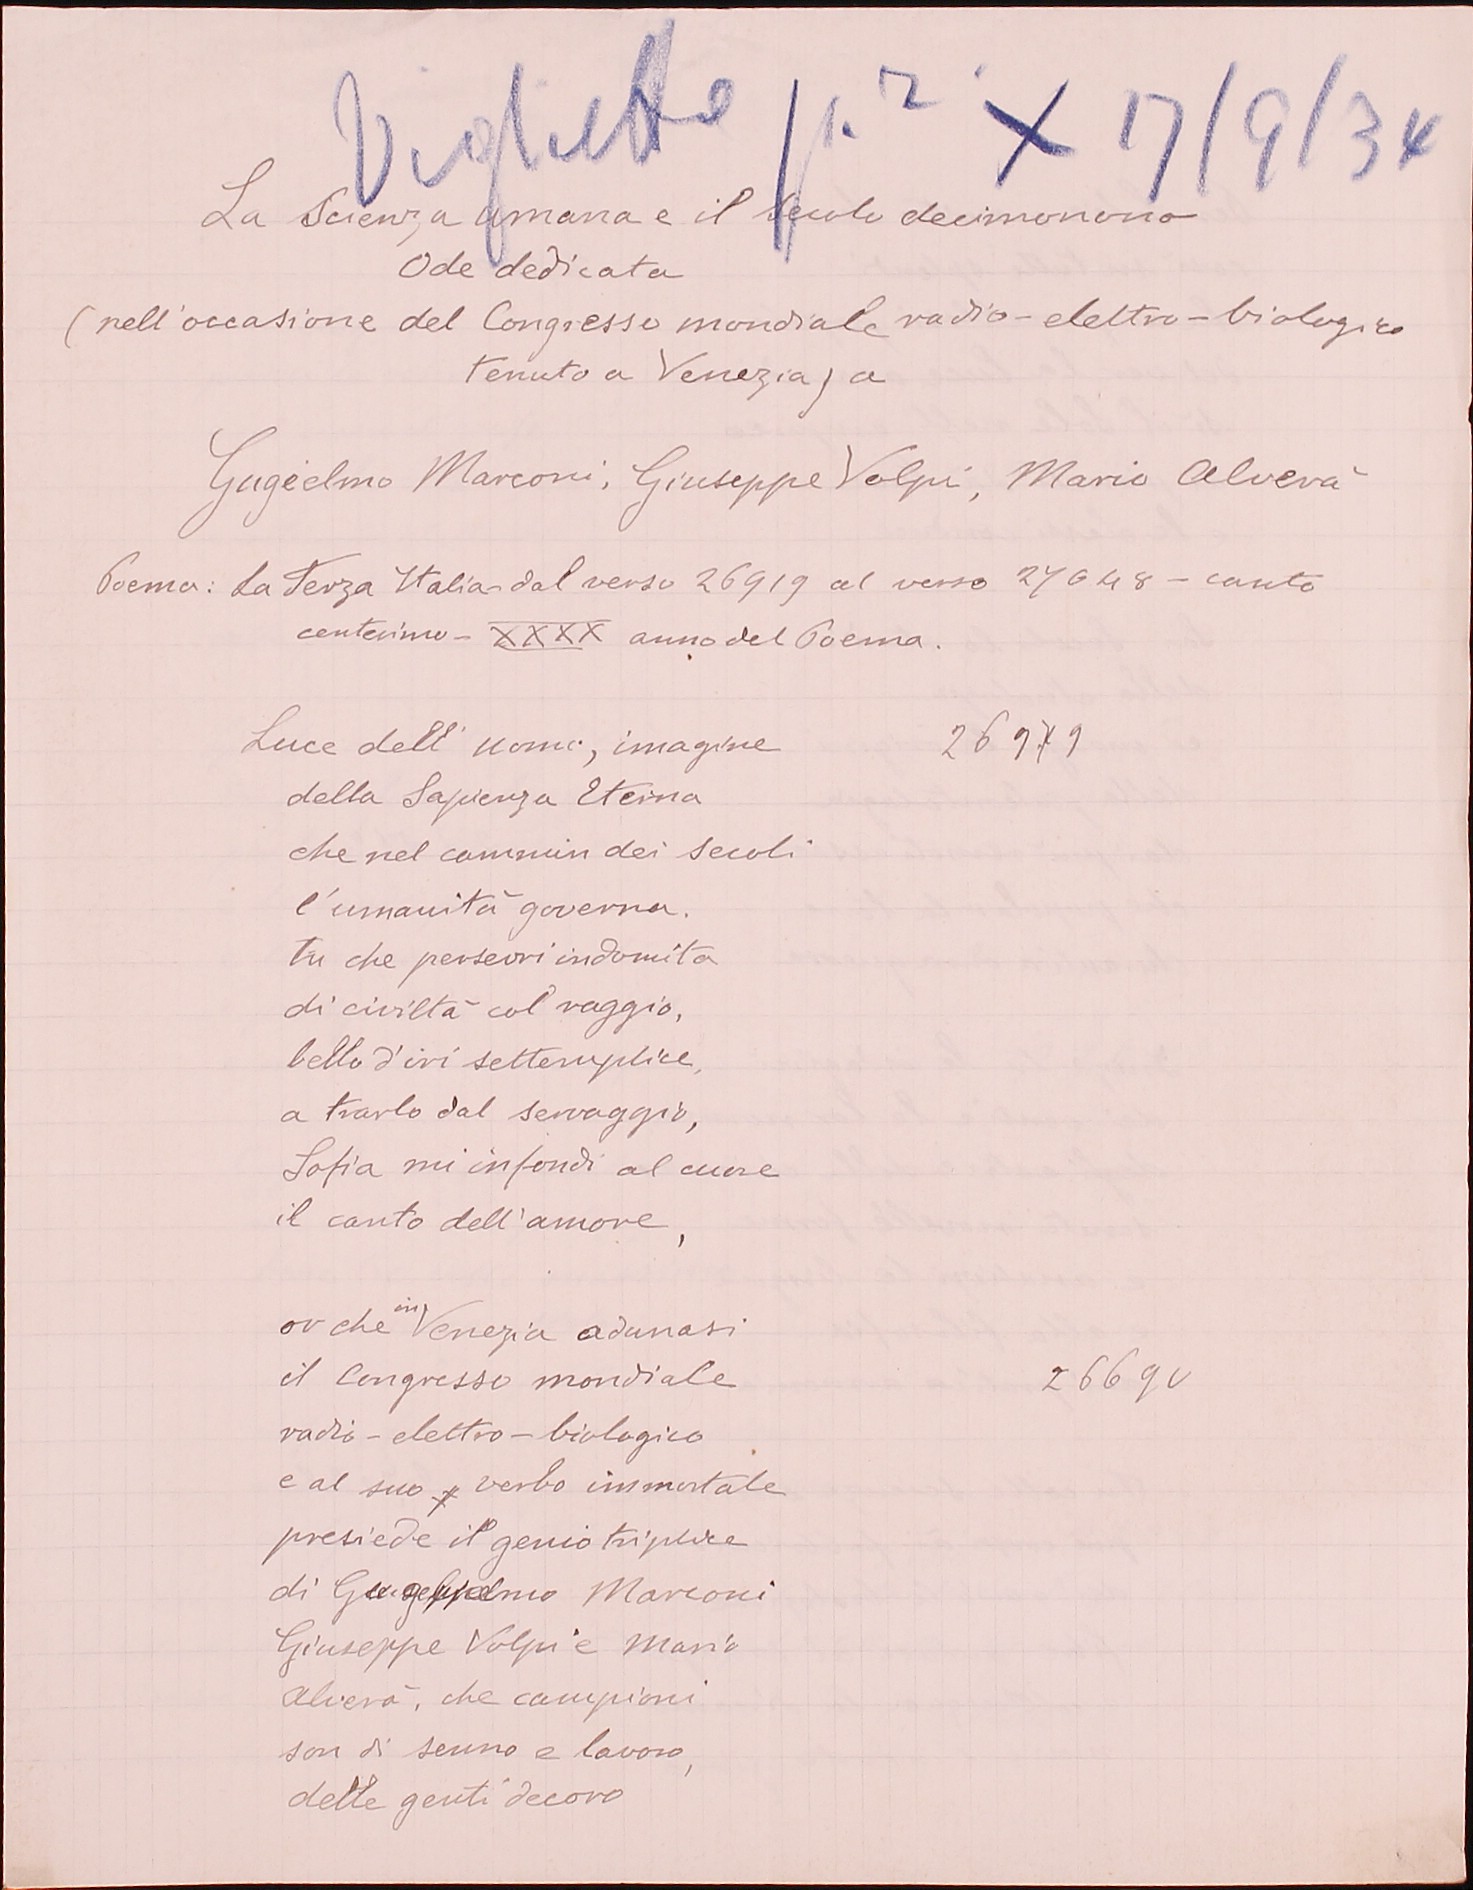 Viglietto p. r. X 17/9/34
La Scienza umana e il Secolo decimonono
Ode dedicata
(nell'occasione del Congresso mondiale radio-elettro-biologico
tenuto a Venezia) a
Gugielmo Marconi, Giuseppe Volpi, Mario Alverà
Poema: La Terza Italia-dal verso 26919 al verso 27048 - canto
centesimo - XXXX anno del Poema.
Luce dell'uomo, imagine 26919
della Sapienza Eterna
che nel cammin dei secoli
l'umanità governa.
tu che perseveri indomita
di civiltà col raggio,
bello d'iri settemplice,
a trarlo dal servaggio,
Sofia mi infondi al cuore
il canto dell'amore,
or che in Venezia adunasi
il Congresso mondiale 26690
radio-elettro-biologico
e al suo verbo immortale
presiede il genio triplice
di Guglielmo Marconi
Giuseppe Volpi e Mario
Alverà, che campioni
son di senno e lavoro,
delle genti decoro